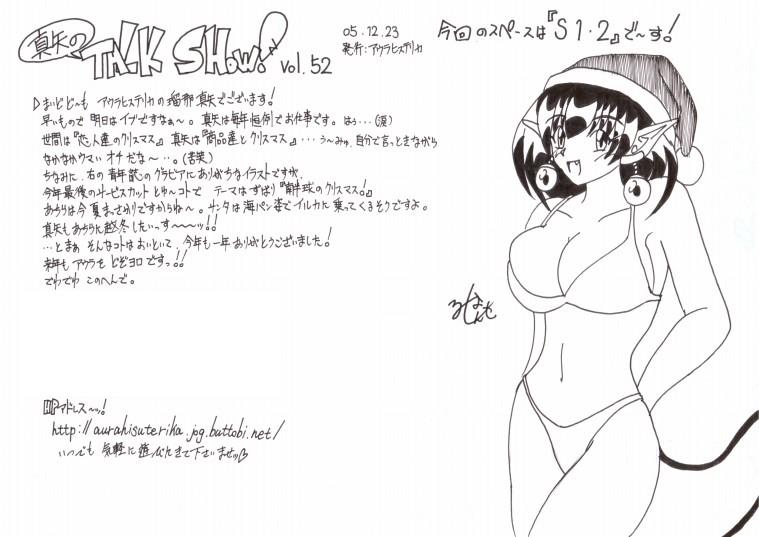 真矢の TALK SHOW! Vol.52
05.12.23
発行:アウラヒステリカ
今回のスペースは『S1・2』で~す!
まいどど~も アウラヒステリカの瑠那真矢でございます!
早いもので 明日はイブですなぁ~。真矢は毎年恒例でお仕事です。はぅ…(涙)
世間は『恋人達のクリスマス』真矢は『商品達とクリスマス』…う~みゅ、自分で言っときながら
なかなかウマい オチだな~…。(苦笑)
ちなみに、右の青年誌のグラビアにありがちなイラストですが、
今年最後のサービスカットとゆ~コトで テーマはずばり『南半球のクリスマス!』
あちらは今 夏まっさかりですからね~。サンタは海パン姿でイルカに乗ってくるそうですよ。
真矢もあちらに越冬したいっす~~~ッ!!
…とまぁ そんなコトはおいといて、今年も一年ありがとうございました!
来年もアウラを どぞヨロですっ!!
でわでわ このへんで。
HPアドレス~ッ!
http://aurahisuterika.jog.buttobi.net/
いつでも 気軽に遊びにきて下さいませッ